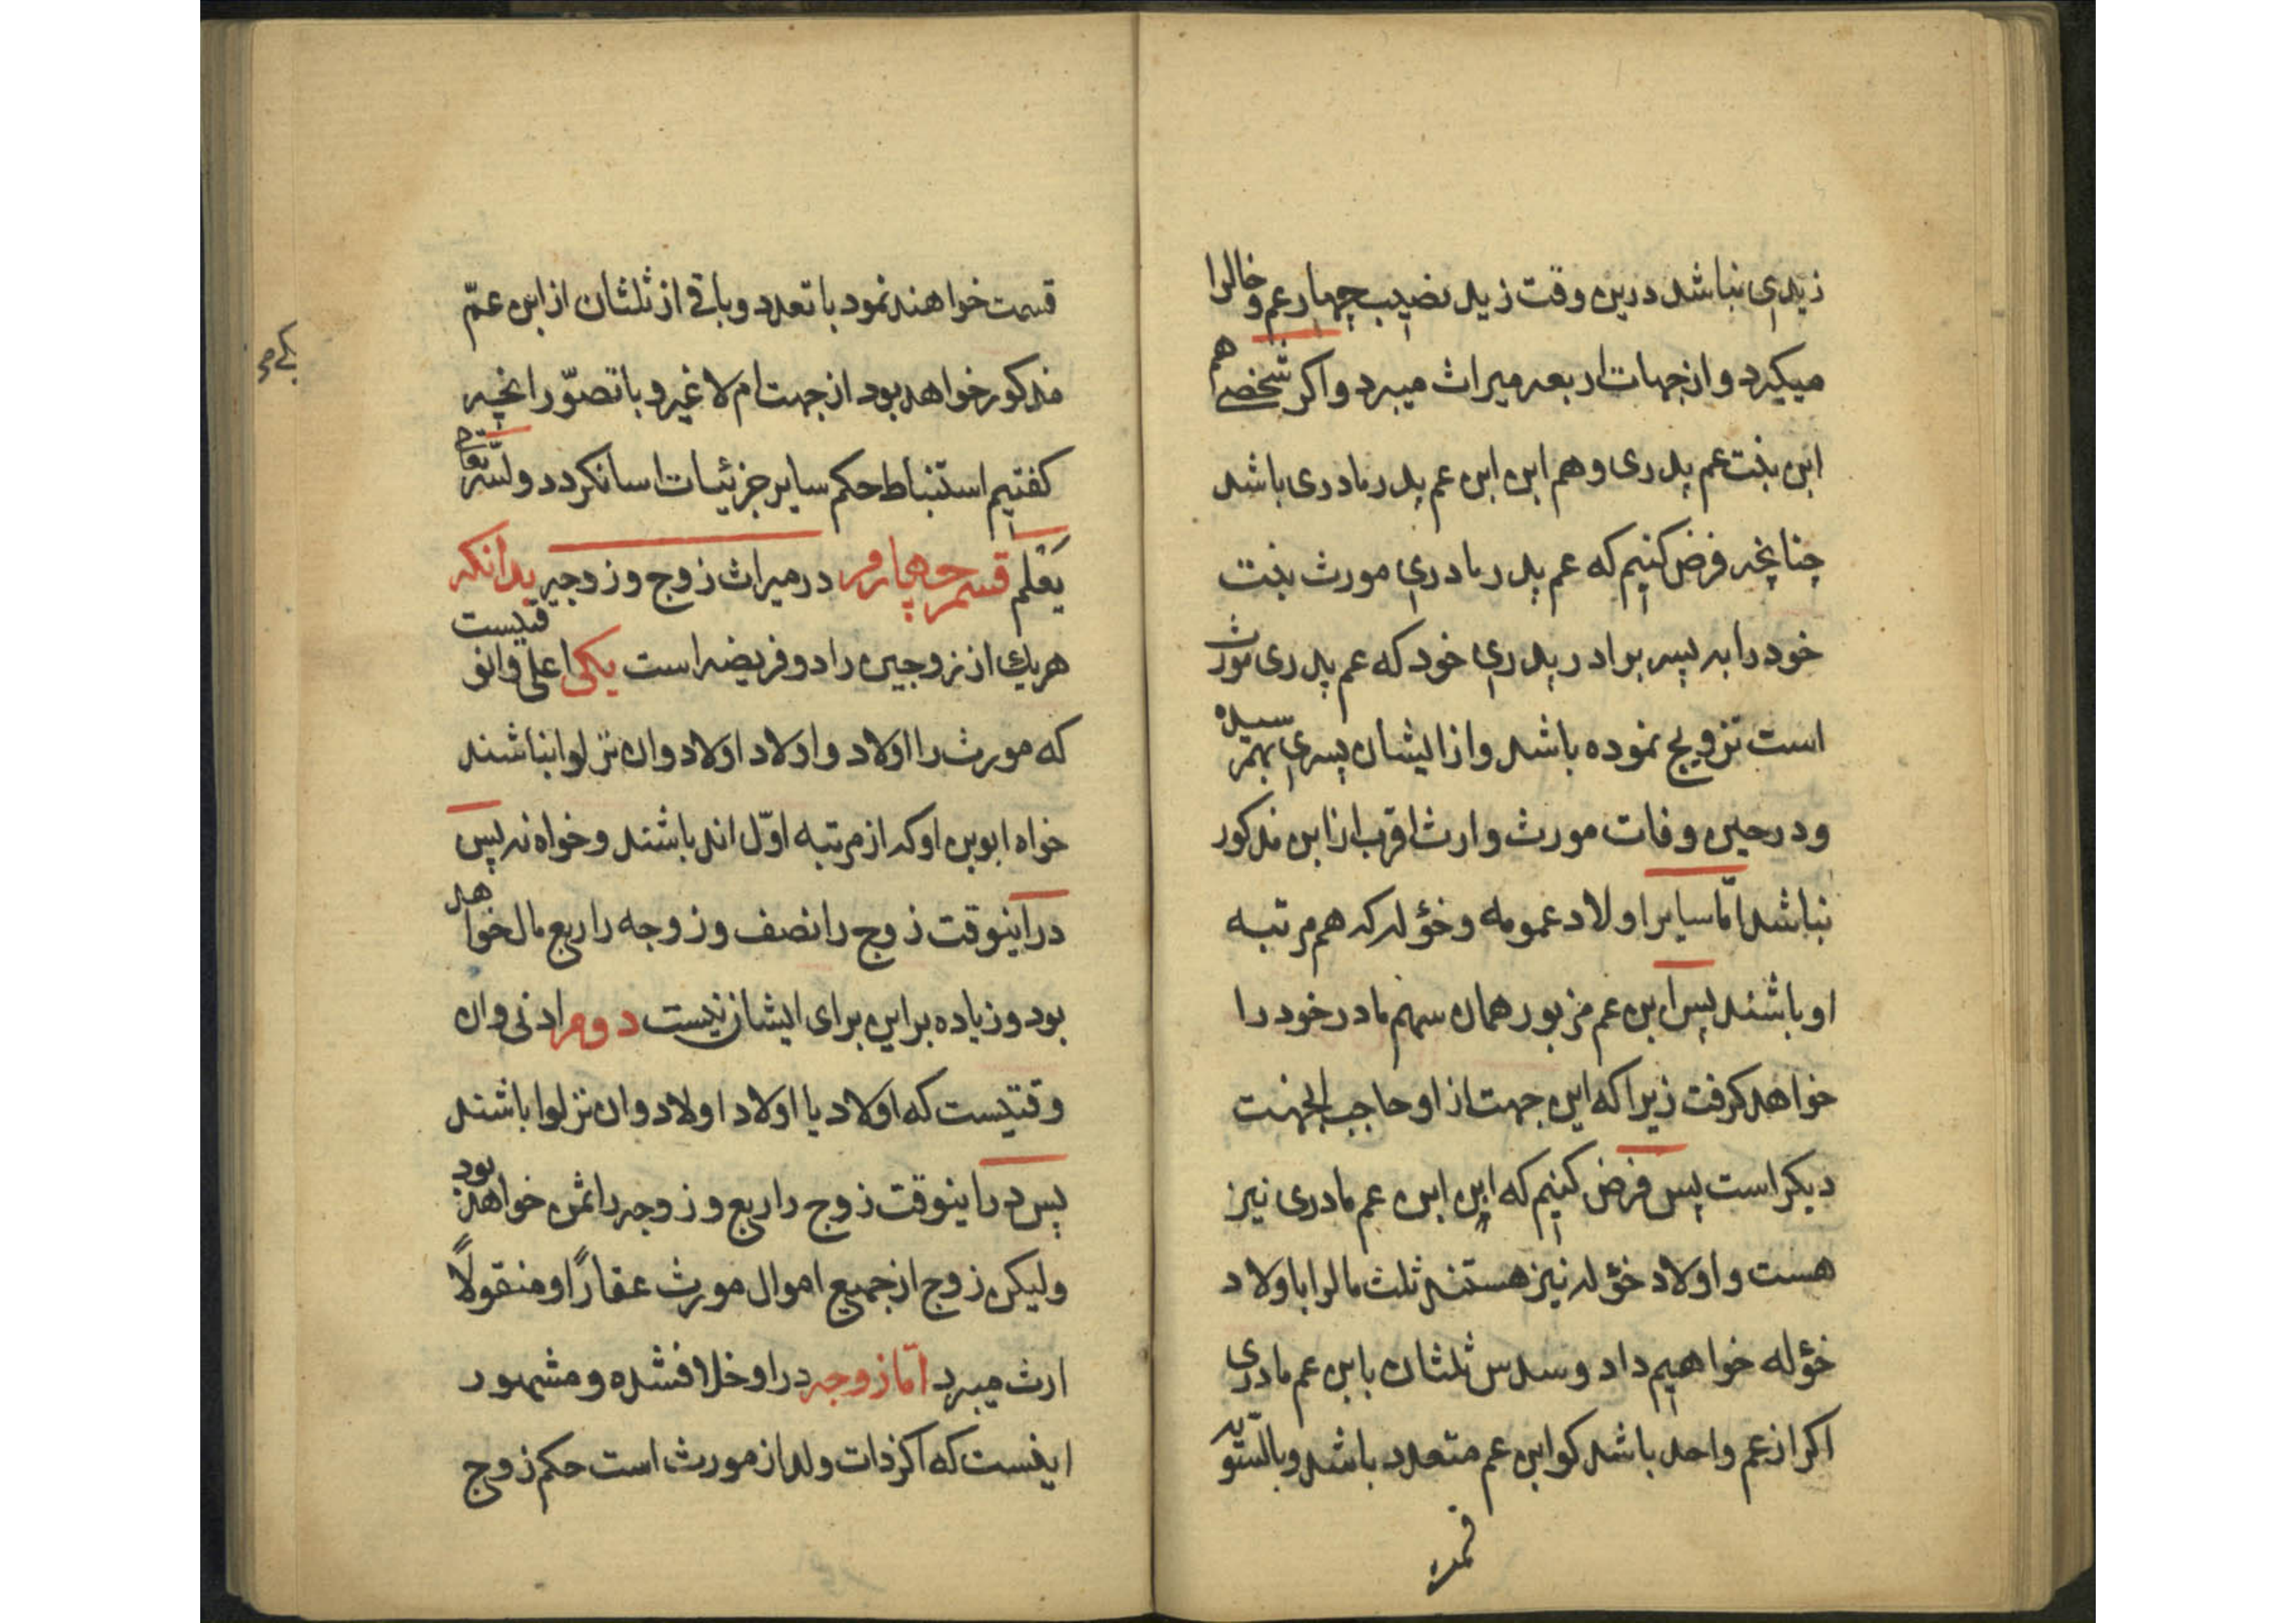 زیدی نباشد درین وقت زید نصیب چهار عم و خالرا
میکیرد و از جهات اربعه میراث میبرد و اکر شخصی هم
ابن بنت عم پدری و هم ابن ابن عم پدر مادری باشد
چنانچه فرض کنیم که عم پدر مادری مورث بنت
خود را به پسر برادر پدری خود که عم پدری مورث
است تزویج نموده باشد و از ایشان پسری بهم رسیده
و در حین وفات مورث وارث اقرب از ابن مذکور
نباشد امّا سایر اولاد عمومه و خؤله که هم مرتبه
او باشند پس ابن عم مزبور همان سهم مادر خود را
خواهد کرفت زیرا که این جهت از او حاجب الجهت
دیکر است پس فرض کنیم که این ابن عم مادری نیز
هست و اولاد خؤله نیز هستند ثلث مالرا باولاد
خؤله خواهیم داد و سدس ثلثان بابن عم مادری
اکر از عم واحد باشد کو ابن عم متعدد باشد و بالسّویه
قسمت
قسمت خواهند نمود با تعدد و باقی از ثلثان از ابن عمّ
مذکور خواهد بود از جهت ام لا غیر و با تصوّر انچه
کفتیم استنباط حکم سایر جزئیات اسان کردد و اللّه تعالی
یَعْلم قسم چهارم در میراث زوج و زوجه بدانکه
هریك از زوجین را دو فریضه است یکی اعلی و ان وقتیست
که مورث را اولاد و اولاد اولاد و ان نزلوا نباشند
خواه ابوین او که از مرتبه اوّل اند باشند و خواه نه پس
در اینوقت زوج را نصف و زوجه را ربع مال خواهد
بود و زیاده بر این برای ایشان نیست دوم ادنی و ان
وقتیست که اولاد یا اولاد اولاد و ان نزلوا باشند
پس در اینوقت زوج را ربع و زوجه را ثمن خواهد بود
ولیکن زوج از جمیع اموال مورث عقارًا و منقولًا
ارث میبرد امّا زوجه در او خلاف شده و مشهور
اینست که اکر ذات ولد از مورث است حکم زوج